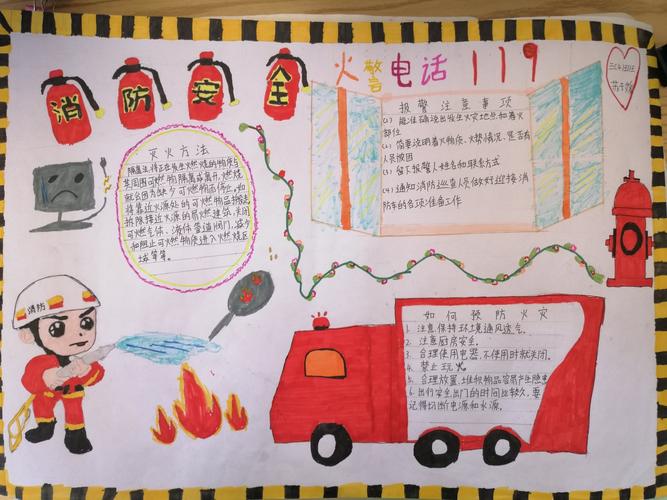 消防安全
火警电话119
报警注意事项
(1) 能准确说出发生火灾地点和着火
部位
(2) 简要说明着火物质、火势情况、是否有
人员被困
(3) 留下报警人姓名和联系方式
(4) 通知消防巡查人员做好迎接消
防车的各项准备工作
灭火方法
隔离法:将正在发生燃烧的物质与
其周围可燃物隔离或离开,燃烧
就会因为缺少可燃物而停止。如
将靠近火源处的可燃物品搬走
拆除接近火源的易燃建筑,关闭
可燃气体、液体管道阀门,减少
和阻止可燃物质进入燃烧区
域等等。
消防
如何预防火灾
1. 注意保持环境通风透气。
2. 注意厨房安全。
3. 合理使用电器,不使用时就关闭。
4. 禁止玩火
5. 合理放置,堆积物品容易产生隐患
6. 出行安全,出门的时间比较久,要
记得切断电源和水源。